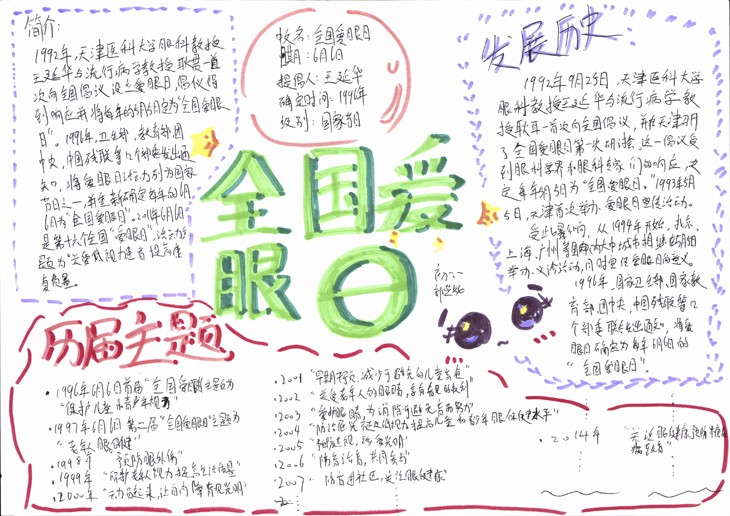 简介:
1992年,天津医科大学眼科教授
王延华与流行病学教授耿贯一首
次向全国倡议,设立爱眼日,倡议得
到响应并将每年的5月5日定为"全国爱眼
日"。1996年,卫生部,教育部,团
中央,中国残联等12个部委发出通
知,将爱眼日活动列为国家
节日之一,并重新确定每年的6月
6日为"全国爱眼日"。2011年6月6日
是第十六个全国"爱眼日",活动主
题为"关爱低视力患者,提高康
复质量。
名:全国爱眼日
日期:6月6日
提倡人:王延华
确定时间:1996年
级别:国家节日
全国爱
眼日
发展历史
1992年9月25日,天津医科大学
眼科教授王延华与流行病学教
授耿贯一首次向全国倡议,并在天津召开
了全国爱眼日第一次研讨会,这一倡议受
到眼科学界和眼科专家们的响应,决
定每年5月5日为"全国爱眼日。"1993年5月
5日,天津首次举办爱眼日宣传活动。
受此影响,从1994年开始,北京、
上海、广州等国内大中城市相继在5月5日
举办义诊活动,同时宣传爱眼日的意义。
1996年,国家卫生部、国家教
育部、团中央,中国残联等12
个部委联合发出通知,将爱
眼日确定为每年6月6日的
"全国爱眼日"。
历届主题
·1996年6月6日首届"全国爱眼日"主题为
"保护儿童和青少年视力"
·1997年6月6日第二届"全国爱眼日"主题为
"老年人眼保健"
·1998年 预防眼外伤"
·1999年 "保护老人视力,提高生活质量"
·2000年 "动员起来,让白内障盲见光明"
·2001 "早期干预,减少可避免的儿童盲"
·2002 "关爱老年人的眼睛,享有看见的权利"
·2003 "爱护眼睛,为消除可避免盲而努力"
·2004 "防治屈光不正及低视力,提高儿童和青少年眼保健水平"
·2005 "预防近视,珍爱光明"
·2006 "防盲治盲,共同参与"
·2007 "防盲进社区,关注眼健康"
·2014年 "关注眼健康,预防糖尿
病致盲"